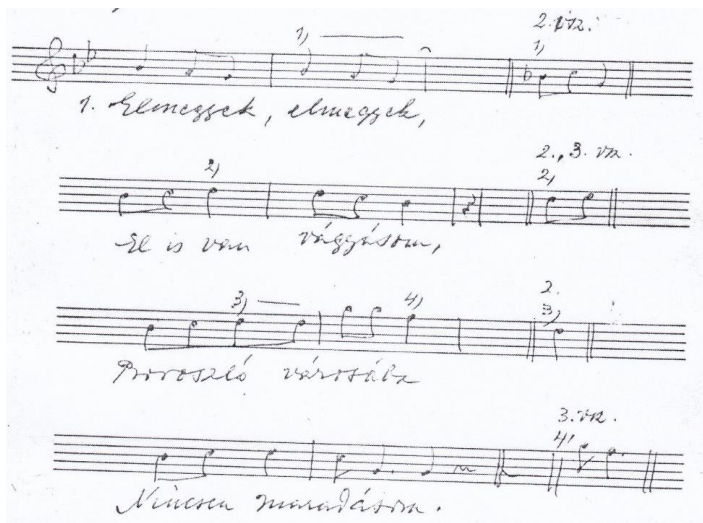 2. vsz.
1) 1)
1. Elmegyek, elmegyek,
2., 3. vsz.
2) 2)
El is van vágyásom,
2.
3) 4) 3)
Boroszló városába
3. vsz.
4)
Nincsen maradásom.